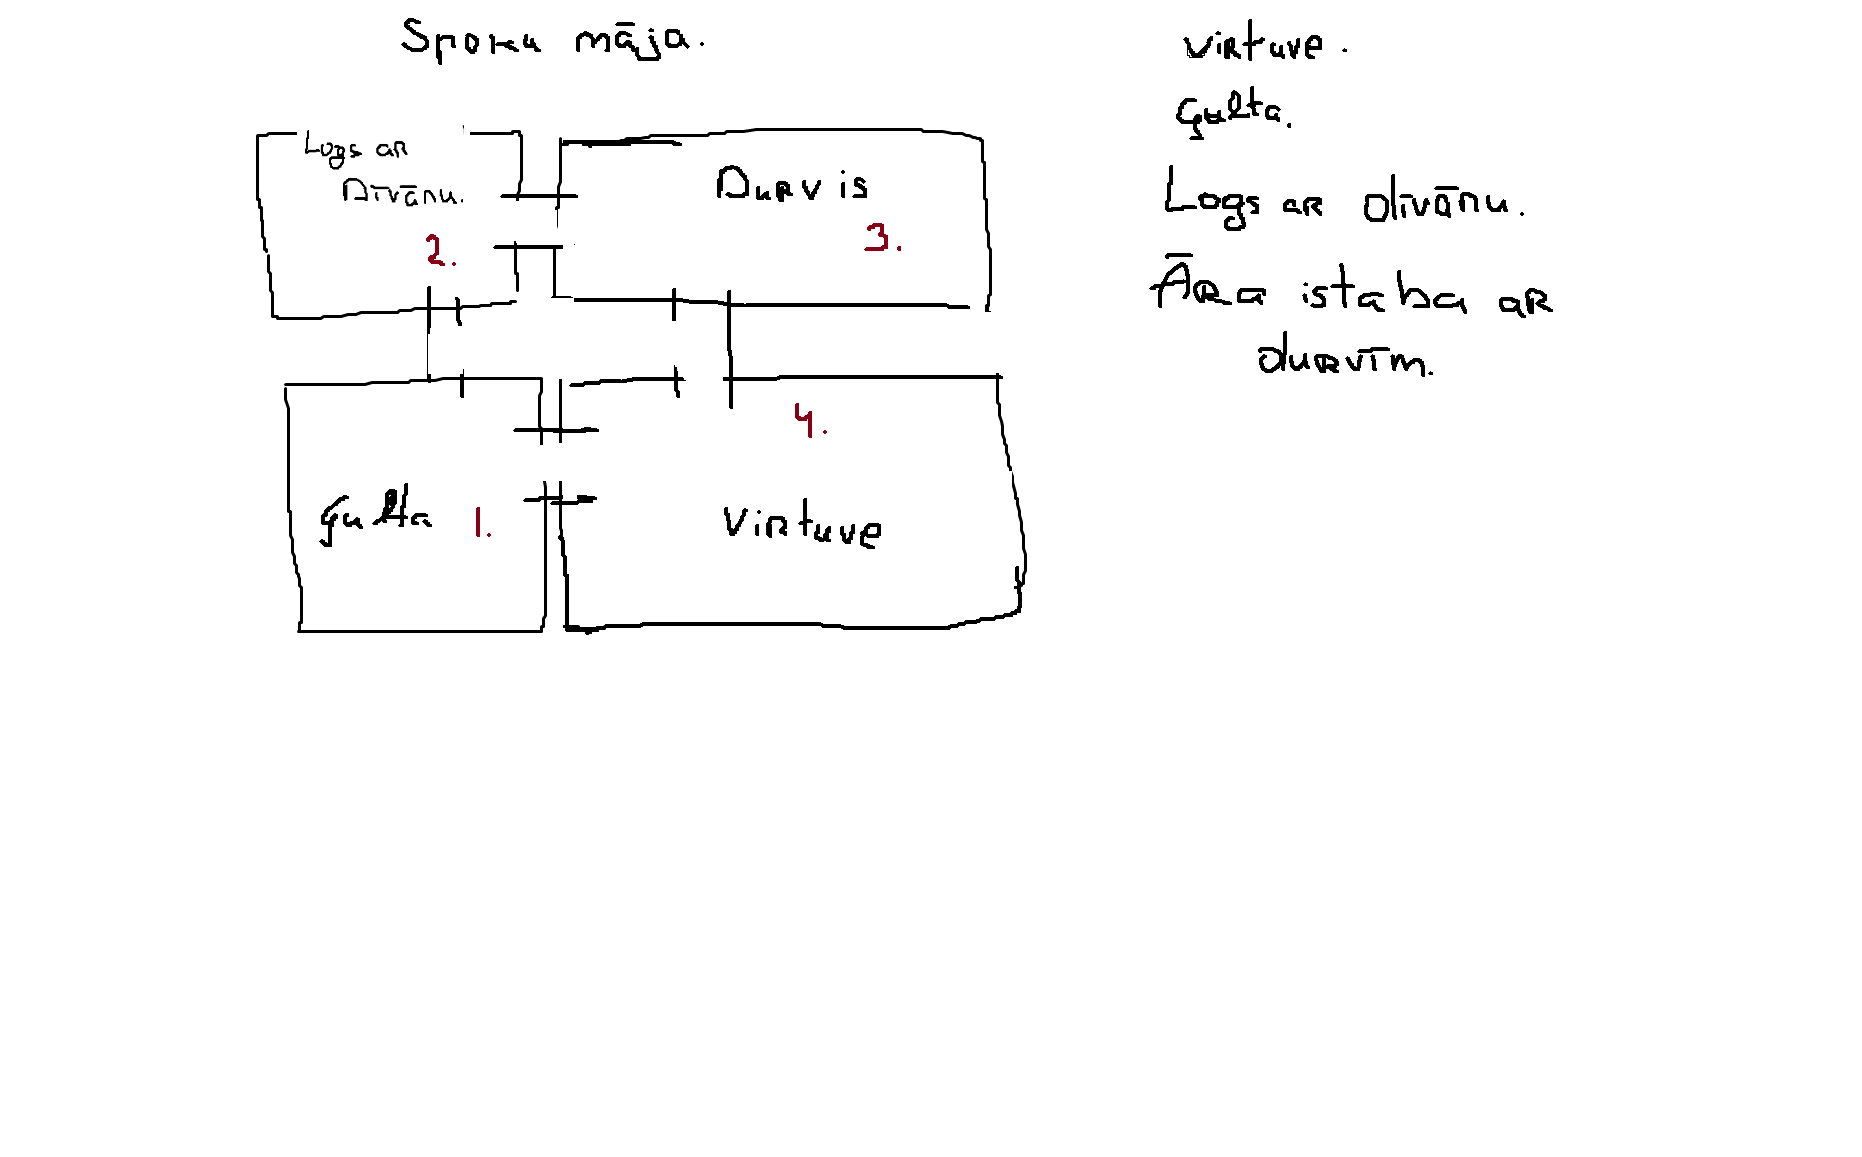 Spoku māja.
Logs ar
Dīvānu.
2.
Durvis
3.
4.
Gulta 1.
Virtuve
virtuve.
Gulta.
Logs ar dīvānu.
Āra istaba ar
durvīm.